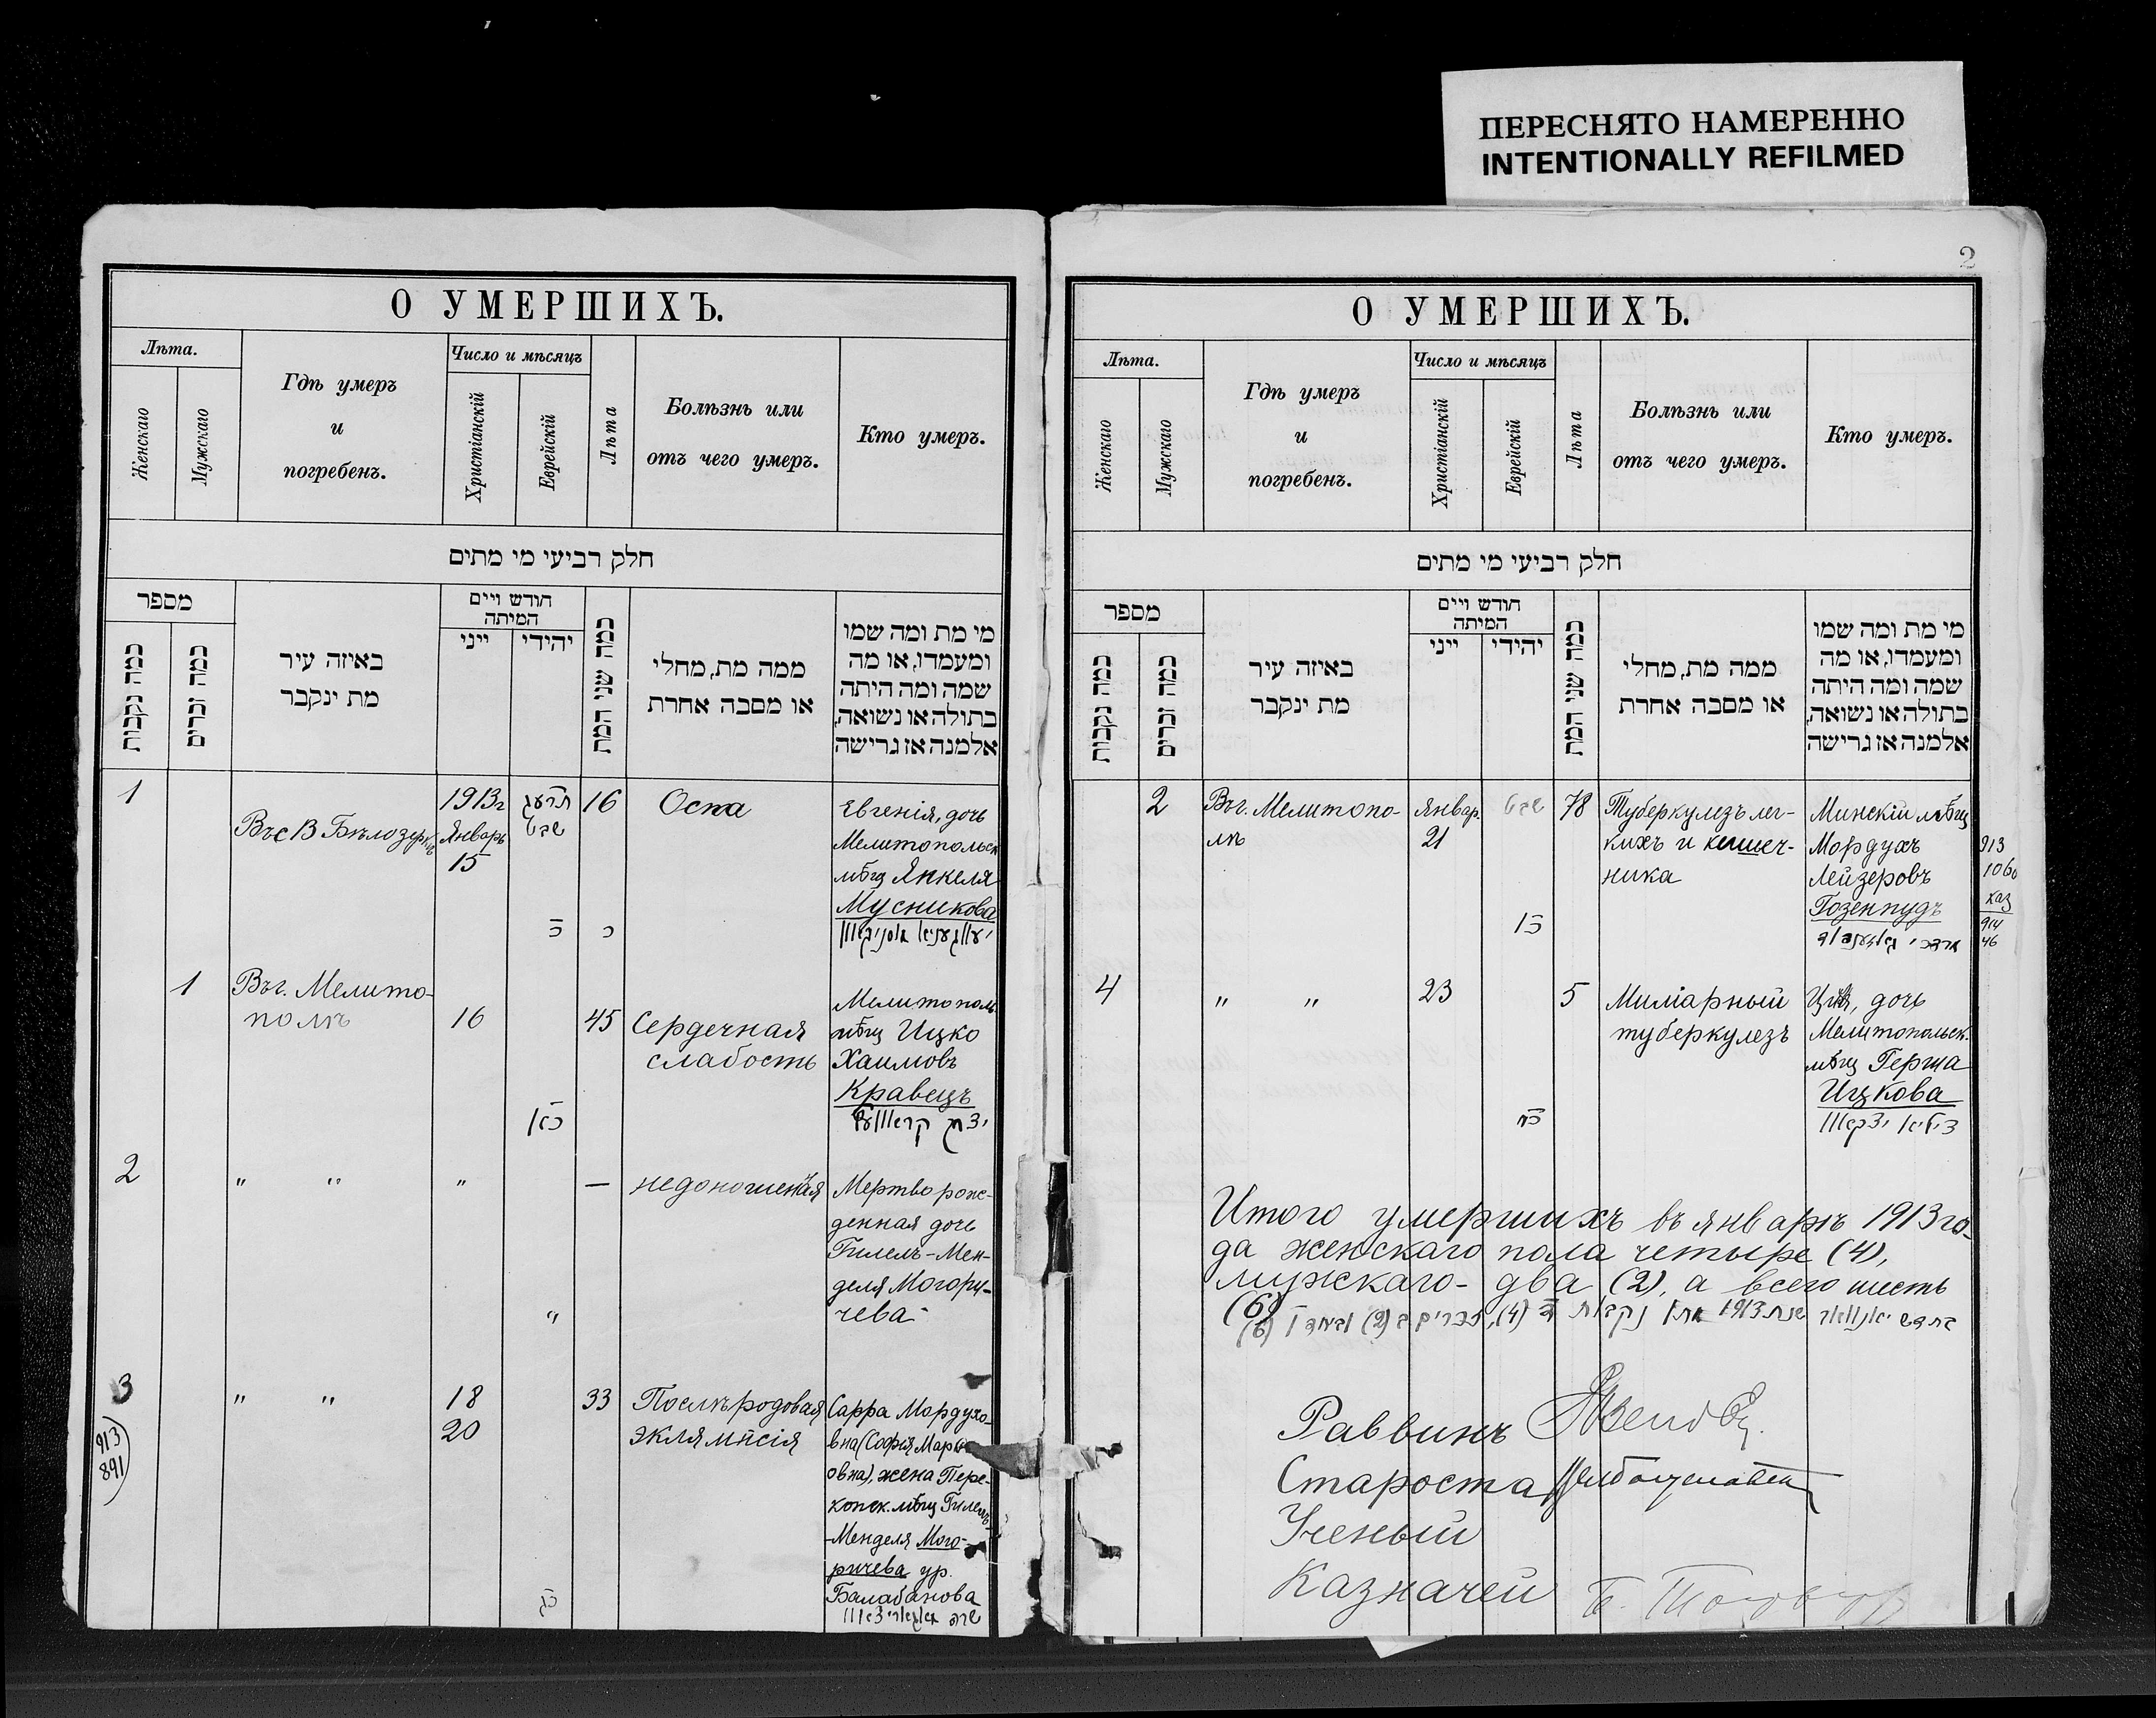 ПЕРЕСНЯТО НАМЕРЕННО
INTENTIONALLY REFILMED
О УМЕРШИХЪ.
Лѣта.
Женскаго
Мужскаго
Гдѣ умеръ
и
погребенъ.
Число и мѣсяцъ
Христіанскій
Еврейскій
Лѣта
Болѣзнь или
отъ чего умеръ.
Кто умеръ.
חלק רביעי מי מתים
מספר
כמה נקבות
כמה זכרים
באיזה עיר
מת ינקבר
חודש ויים
המיתה
ייני
יהידי
כמה שני המת
ממה מת, מחלי
או מסבה אחרת
מי מת ומה שמו
ומעמדו, או מה
שמה ומה היתה
בתולה או נשואה,
אלמנה אז גרישה
1
Въ с В Бѣлозеркѣ
1913г
Январь
15
תרעג
שבט
כ
16
Оспа
Евгенія, дочь
Мелитопольск
мѣщ Янкеля
Мусникова
1
Въ г. Мелито-
полѣ
16
כא
45
Сердечная
слабость
Мелитополь.
мѣщ Ицко
Хаимовъ
Кравецъ
2
" "
"
"
—
недоношеная
Мертворож-
денная дочь
Гилель-Мен-
деля Могори-
чева
3
913
891
" "
18
20
כג
33
Послѣродовая
эклямпсія
Сарра Мордухо-
вна (Софія Марк
овна), жена Пере-
копск. мѣщ Гилель-
-Менделя Мого-
ричева ур.
Балабанова
2
О УМЕРШИХЪ.
Лѣта.
Женскаго
Мужскаго
Гдѣ умеръ
и
погребенъ.
Число и мѣсяцъ
Христіанскій
Еврейскій
Лѣта
Болѣзнь или
отъ чего умеръ.
Кто умеръ.
חלק רביעי מי מתים
מספר
כמה נקבות
כמה זכרים
באיזה עיר
מת ינקבר
חודש ויים
המיתה
ייני
יהידי
כמה שני המת
ממה מת, מחלי
או מסבה אחרת
מי מת ומה שמו
ומעמדו, או מה
שמה ומה היתה
בתולה או נשואה,
אלמנה אז גרישה
2
Въ г. Мелитопо-
лѣ
Январ.
21
שבט
כו
78
Туберкулезъ лег-
кихъ и кишеч-
ника
Минскій мѣщ
Мордухъ
Лейзеровъ
Гозенпудъ
913
1060
каз
914
46
4
" "
23
כח
5
Миліарный
туберкулезъ
дочь
Мелитопольск.
мѣщ Герша
Ицкова
Итого умершихъ въ январѣ 1913 го-
да женскаго пола четыре (4),
мужскаго - два (2), а всего шесть
(6)
Раввинъ
Староста
Ученый
Казначей